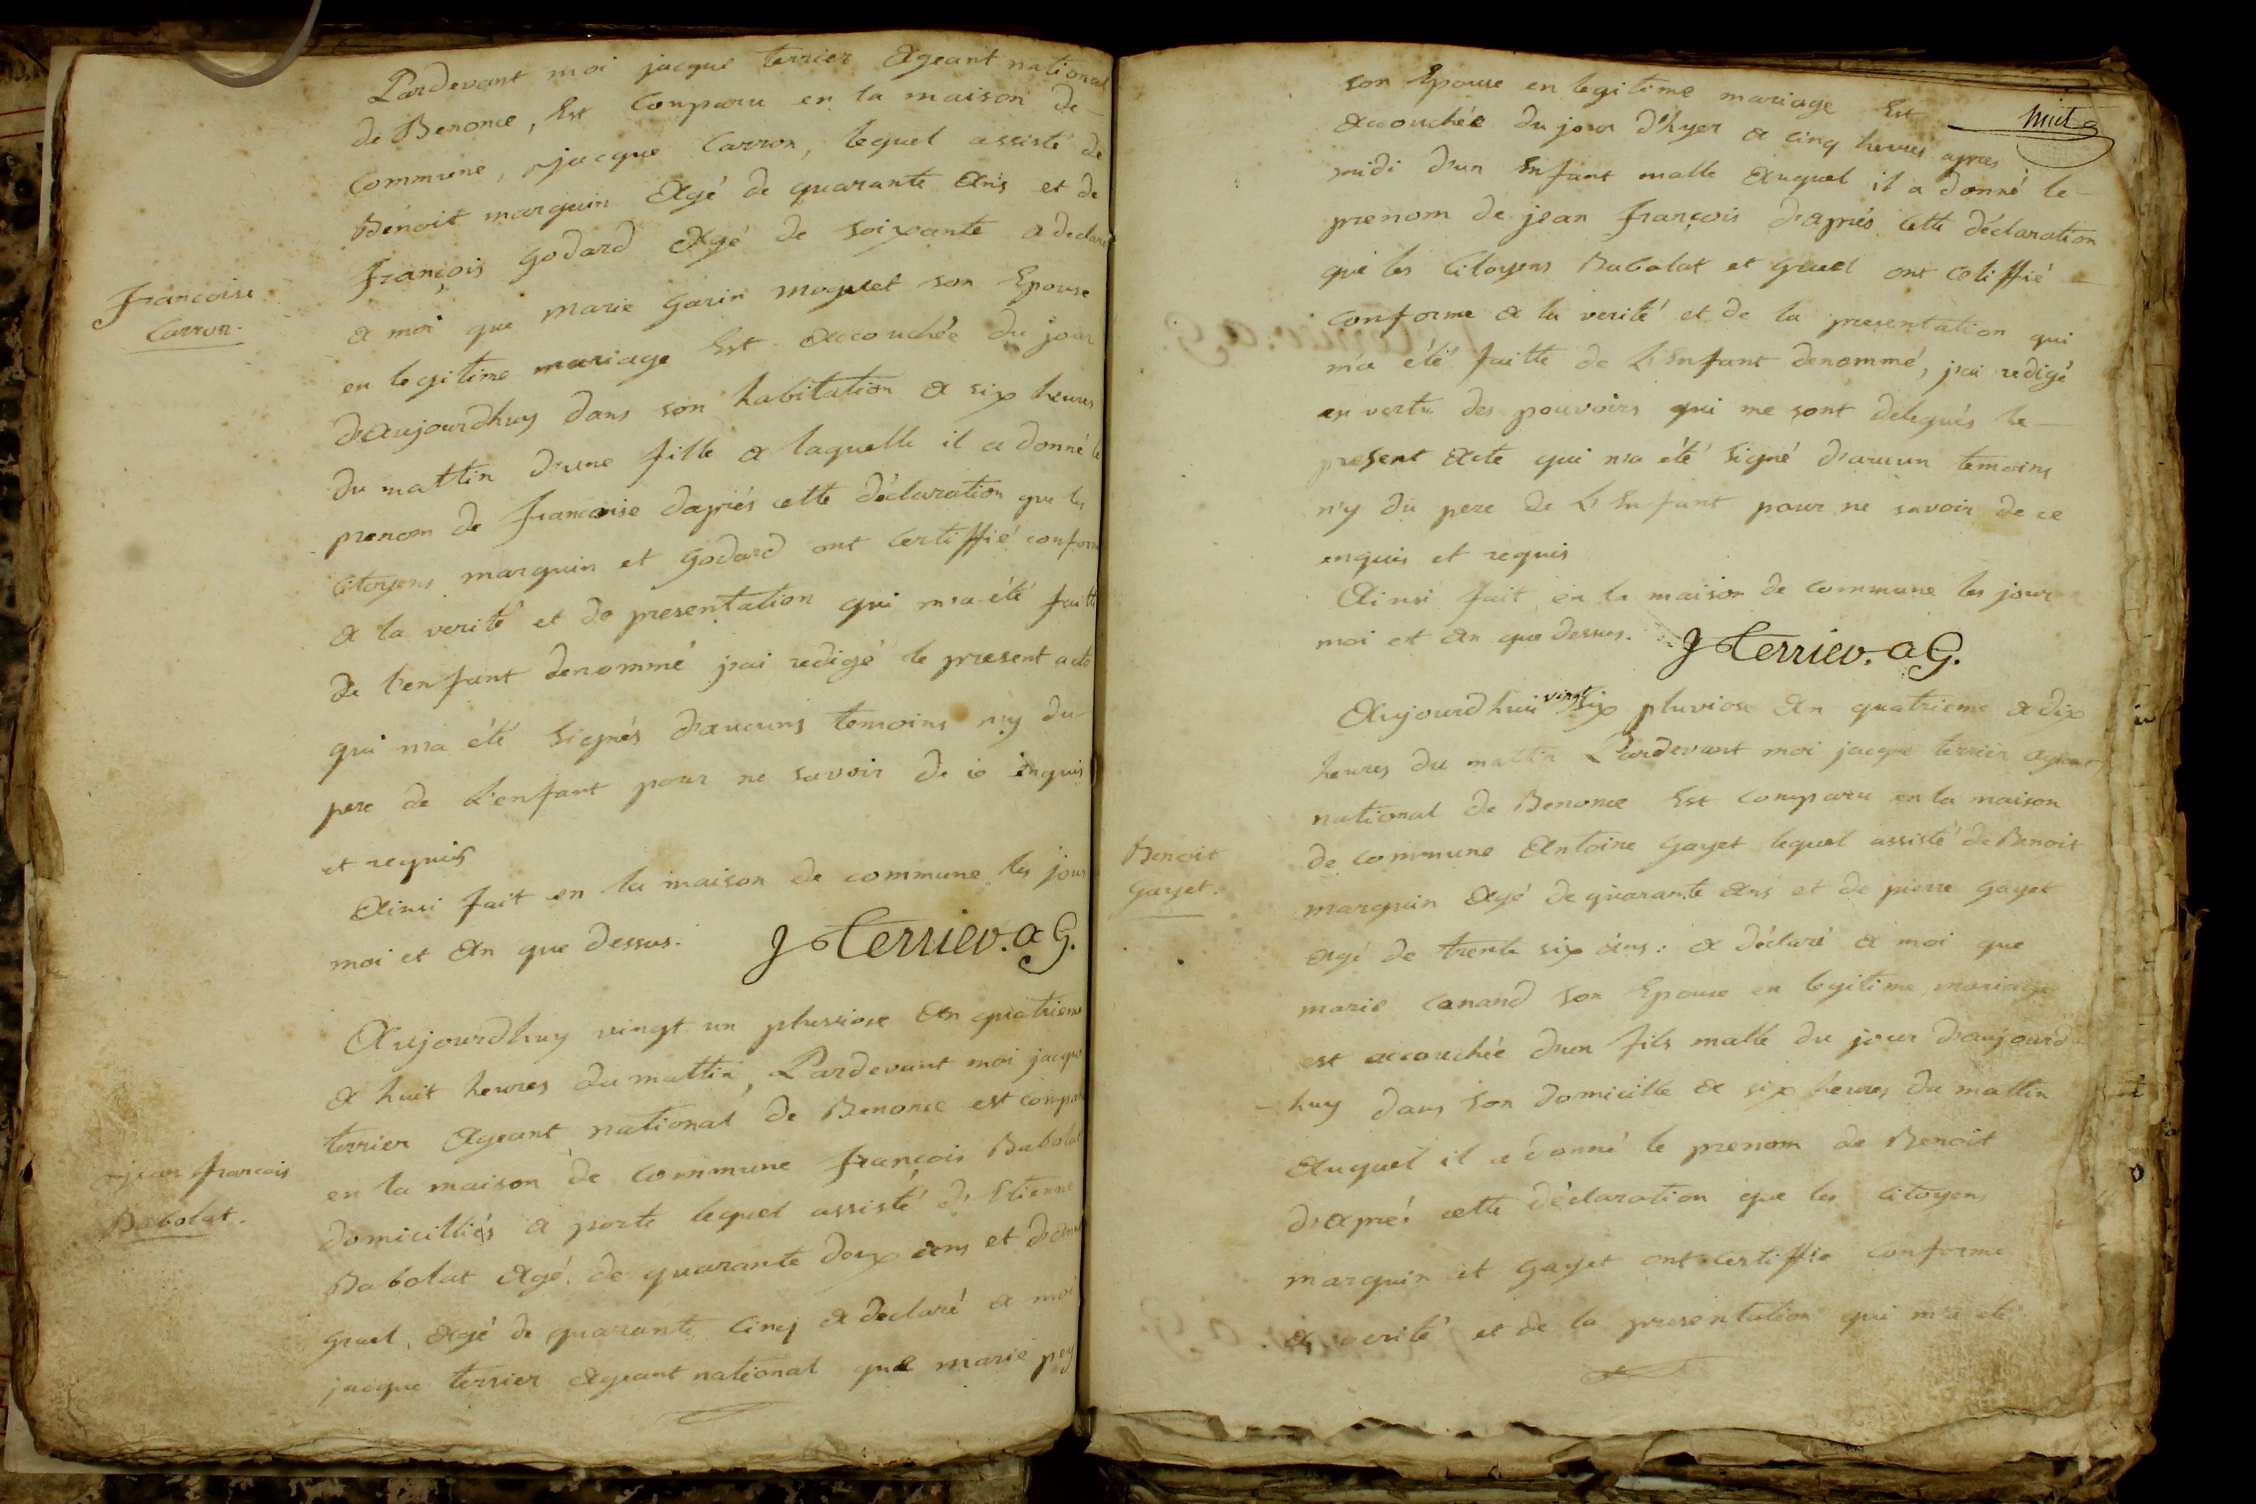 Pardevant moi jacque terrier Ageant national
de Benonce, Est Comparu en la maison de
Commune, jacque Carron, lequel assisté de
Benoit marquin Agé de quarante Ans et de
françois Godard Agé de soixante a declaré
a moi que marie Garin moquet son Epouse
en legitime mariage Est accouchée du jour
d'aujourdhuy dans son habitation a six heures
du mattin d'une fille a laquelle il a donné le
prenom de francoise daprés cette déclaration que les
Citoyens marquin et Godard ont Certiffié conforme
a la verité et de presentation qui m'a été faitte
de l'enfant denommé j'ai redigé le present acte
qui n'a été signés d'aucuns temoins n'y du
pere de L'enfant pour ne savoir de ce enquis
et requis
Ainsi fait en la maison de commune les jour
moi et An que dessus. J Terrier. a G.
francoise
Carron.
Aujourdhuy vingt un pluviose An quatrieme
a huit heures du mattin, Pardevant moi jacque
terrier Ageant national de Benonce est comparu
en la maison de Commune françois Babolat
domicilliés a porte lequel assisté de Etienne
Babolat Agé de quarante deux ans et
gruel, Agé de quarante Cinq a declaré a moi
jacque terrier Ageant national que marie pey
jean francois
Babolat.
huit
son Epouse en legitime mariage Est
accouchée du jour d'hyer a cinq heures apres
midi d'un Enfant malle Auquel il a donné le
prenom de jean françois d'aprés cette déclaration
que les Citoyens Babolat et gruel ont cetiffié
Conforme a la verité et de la presentation qui
m'a été faitte de L'Enfant denommé, j'ai redigé
en vertu des pouvoirs qui me sont delegués le
present Acte qui n'a été signé d'aucun temoins
n'y du pere de L'Enfant pour ne savoir de ce
enquis et requis
Ainsi fait en la maison de commune les jour
moi et An que dessus. J Terrier. a G.
Aujourdhui vingt six pluviose An quatrieme a dix
heures du mattin Pardevant moi jacque terrier agent
national de Benonce Est Comparu en la maison
de commune Antoine Gayet lequel assisté de Benoit
marquin Agé de quarante Ans et de pierre Gayet
agé de trente six ans: a déclaré a moi que
marie Canand son Epouse en legitime mariage
est accouchée d'un fils malle du jour d'aujourd
huy dans son domicille a six heures du mattin
Auquel il a donné le prenom de Benoit
d'aprés cette déclaration que les Citoyens
marquin et Gayet ont certiffié conforme
a verité et de la presentation qui m'a eté
Benoit
Gayet.